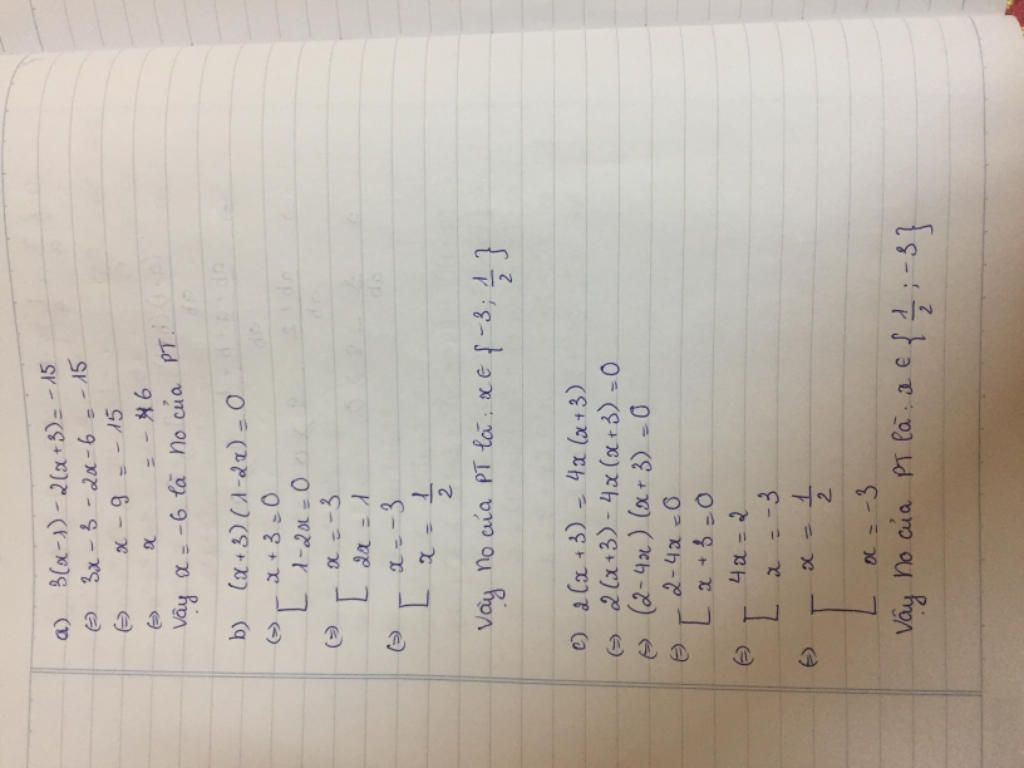 a) 3(x-1) - 2(x+3) = -15
(=) 3x - 3 - 2x - 6 = -15
(=) x - 9 = -15
(=) x = - 6
Vậy x = -6 là no của PT.
b) (x+3)(1-2x) = 0
(=) [ x+3 = 0
[ 1-2x = 0
(=) [ x = -3
[ 2x = 1
(=) [ x = -3
[ x = 1/2
Vậy no của PT là: x ∈ { -3 ; 1/2 }
c) 2(x+3) = 4x(x+3)
(=) 2(x+3) - 4x(x+3) = 0
(=) (2-4x)(x+3) = 0
(=) [ 2-4x = 0
[ x+3 = 0
(=) [ 4x = 2
[ x = -3
(=) [ x = 1/2
[ x = -3
Vậy no của PT là: x ∈ { 1/2 ; -3 }